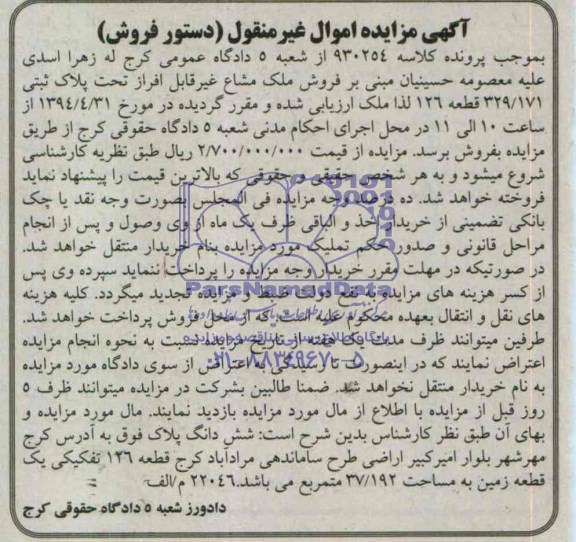 آگهی مزایده اموال غیرمنقول (دستور فروش)
بموجب پرونده کلاسه ۹۳۰۲۵٤ از شعبه ۵ دادگاه عمومی کرج له زهرا اسدی
علیه معصومه حسینیان مبنی بر فروش ملک مشاع غیرقابل افراز تحت پلاک ثبتی
۳۲۹/۱۷۱ قطعه ۱۲٦ لذا ملک ارزیابی شده و مقرر گردیده در مورخ ۱۳۹٤/٤/۳۱ از
ساعت ۱۰ الی ۱۱ در محل اجرای احکام مدنی شعبه ۵ دادگاه حقوقی کرج از طریق
مزایده بفروش برسد. مزایده از قیمت ۲/۷۰۰/۰۰۰/۰۰۰ ریال طبق نظریه کارشناسی
شروع میشود و به هر شخص حقیقی و حقوقی که بالاترین قیمت را پیشنهاد نماید
فروخته خواهد شد. ده درصد وجه مزایده فی المجلس بصورت وجه نقد یا چک
بانکی تضمینی از خریدار اخذ و الباقی ظرف یک ماه از وی وصول و پس از انجام
مراحل قانونی و صدور حکم تملیک مورد مزایده بنام خریدار منتقل خواهد شد.
در صورتیکه در مهلت مقرر خریدار وجه مزایده را پرداخت ننماید سپرده وی پس
از کسر هزینه های مزایده به نفع دولت ضبط و مزایده تجدید میگردد. کلیه هزینه
های نقل و انتقال بعهده محکوم علیه است که از محل فروش پرداخت خواهد شد.
طرفین میتوانند ظرف مدت یک هفته از تاریخ مزایده نسبت به نحوه انجام مزایده
اعتراض نمایند که در اینصورت تا رسیدگی به اعتراض از سوی دادگاه مورد مزایده
به نام خریدار منتقل نخواهد شد. ضمنا طالبین بشرکت در مزایده میتوانند ظرف ۵
روز قبل از مزایده با اطلاع از مال مورد مزایده بازدید نمایند. مال مورد مزایده و
بهای آن طبق نظر کارشناس بدین شرح است: شش دانگ پلاک فوق به آدرس کرج
مهرشهر بلوار امیرکبیر اراضی طرح ساماندهی مرادآباد کرج قطعه ۱۲٦ تفکیکی یک
قطعه زمین به مساحت ۳۷/۱۹۲ متمربع می باشد.۲۲۰٤٦ م/الف
دادورز شعبه ۵ دادگاه حقوقی کرج
ParsNamadData
۰۲۱-۸۸۳٤۹٦۷۰-۵